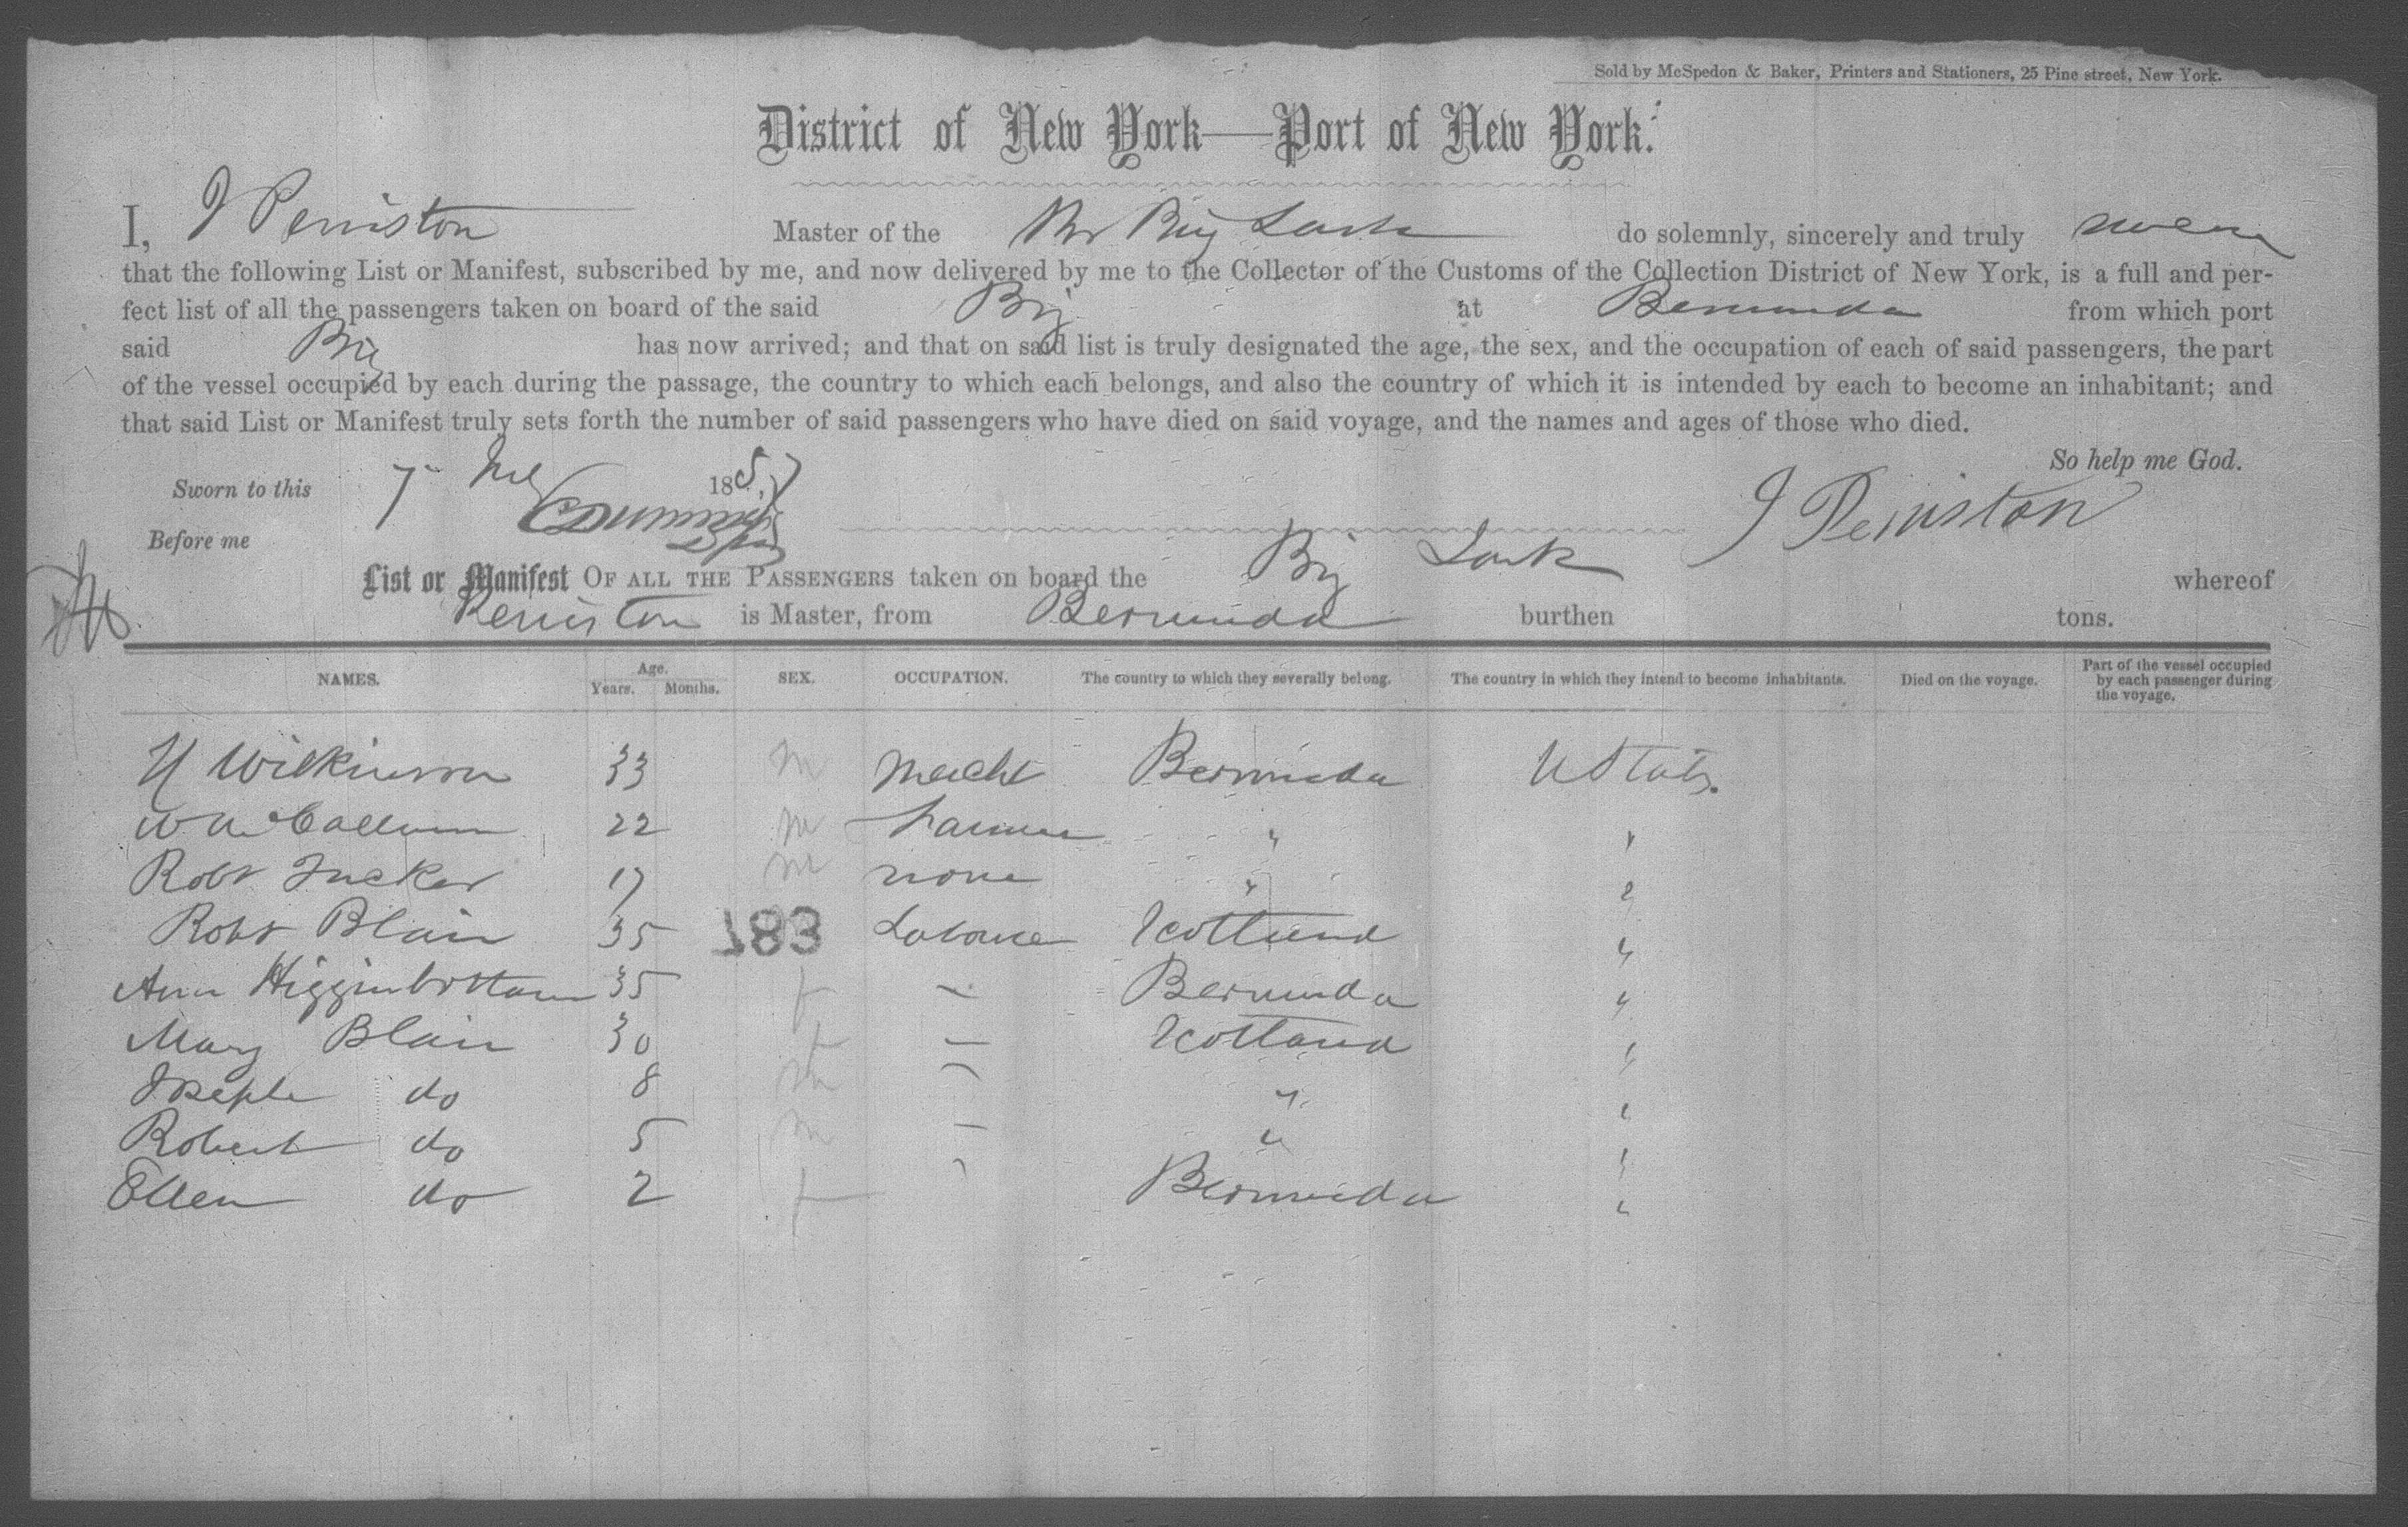 Sold by McSpedon & Baker, Printers and Stationers, 25 Pine street, New York.
District of New York—Port of New York.
I, J Peniston Master of the Br Brig Lark do solemnly, sincerely and truly swear
that the following List or Manifest, subscribed by me, and now delivered by me to the Collector of the Customs of the Collection District of New York, is a full and per-
fect list of all the passengers taken on board of the said Brig at Bermuda from which port
said Brig has now arrived; and that on said list is truly designated the age, the sex, and the occupation of each of said passengers, the part
of the vessel occupied by each during the passage, the country to which each belongs, and also the country of which it is intended by each to become an inhabitant; and
that said List or Manifest truly sets forth the number of said passengers who have died on said voyage, and the names and ages of those who died.
So help me God.
Sworn to this 7 1857
Before me J Peniston
List or Manifest OF ALL THE PASSENGERS taken on board the Brig Lark whereof
Peniston is Master, from Bermuda burthen tons.
NAMES. Age. Years. Months. SEX. OCCUPATION. The country to which they severally belong. The country in which they intend to become inhabitants. Died on the voyage. Part of the vessel occupied by each passenger during the voyage.
H Wilkinson 33 m Mercht Bermuda U States.
W McCallum 22 m Farmer " "
Robt Tucker 17 m none " "
Robt Blair 35 183 Laborer Scotland "
Ann Higginbottom 35 f – Bermuda "
Mary Blair 30 f – Scotland "
Joseph do 8 m – " "
Robert do 5 m – " "
Ellen do 2 f – Bermuda "